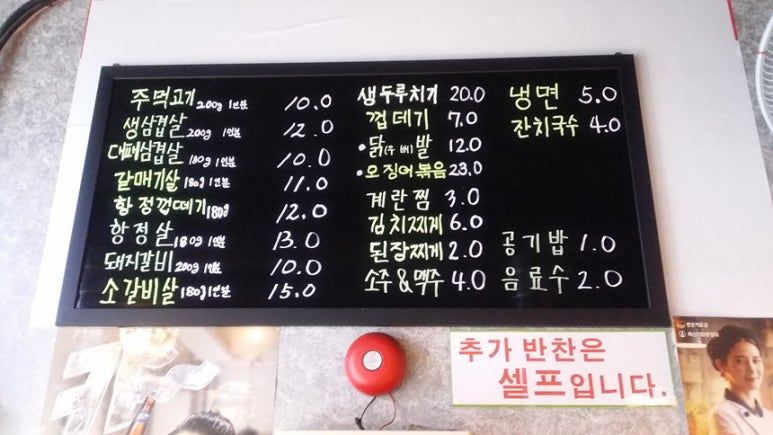 주먹고기 200g 1인분 10.0
생삼겹살 200g 1인분 12.0
대패삼겹살 180g 1인분 10.0
갈매기살 180g 1인분 11.0
항정껍떼기 180g 12.0
항정살 180g 1인분 13.0
돼지갈비 200g 1인분 10.0
소갈비살 180g 1인분 15.0
생두루치기 20.0
껍데기 7.0
•닭(무뼈)발 12.0
•오징어볶음 23.0
계란찜 3.0
김치찌게 6.0
된장찌게 2.0
소주&맥주 4.0
냉면 5.0
잔치국수 4.0
공기밥 1.0
음료수 2.0
추가 반찬은
셀프입니다.